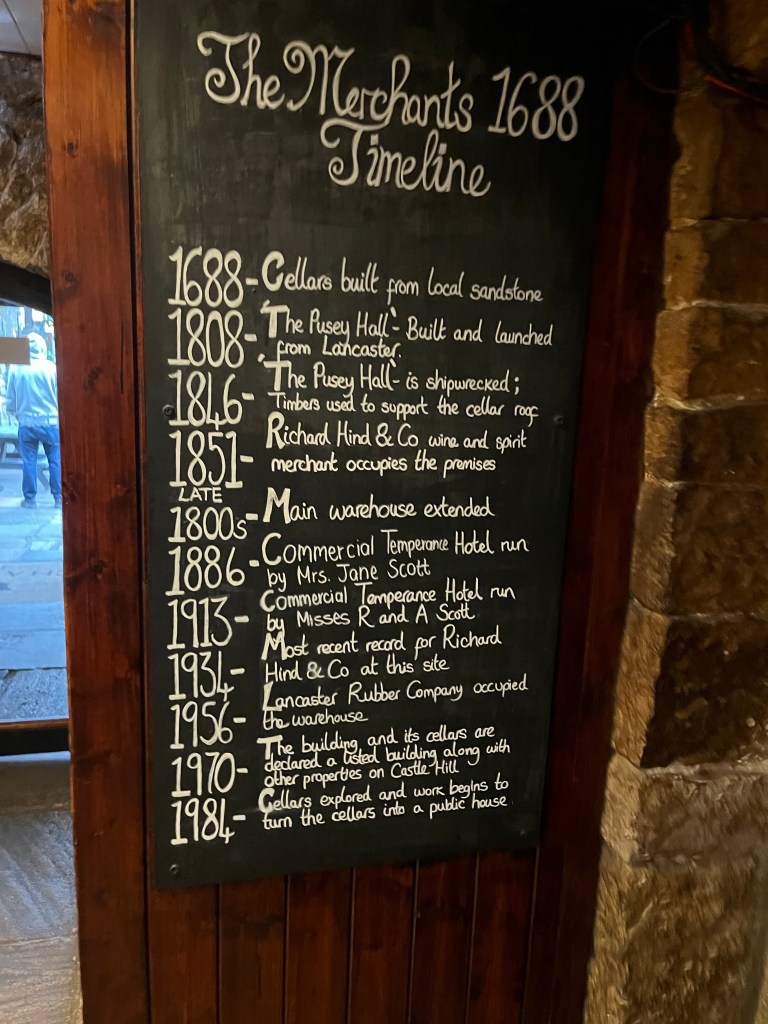 The Merchants 1688
Timeline
1688- Cellars built from local sandstone
1808- The Pusey Hall - Built and launched
from Lancaster.
1846- The Pusey Hall - is shipwrecked;
Timbers used to support the cellar roof
1851- Richard Hind & Co wine and spirit
merchant occupies the premises
LATE
1800s- Main warehouse extended
1886- Commercial Temperance Hotel run
by Mrs. Jane Scott
1913- Commercial Temperance Hotel run
by Misses R and A Scott
1934- Most recent record for Richard
Hind & Co at this site
1956- Lancaster Rubber Company occupied
the warehouse
1970- The building and its cellars are
declared a listed building along with
other properties on Castle Hill
1984- Cellars explored and work begins to
turn the cellars into a public house